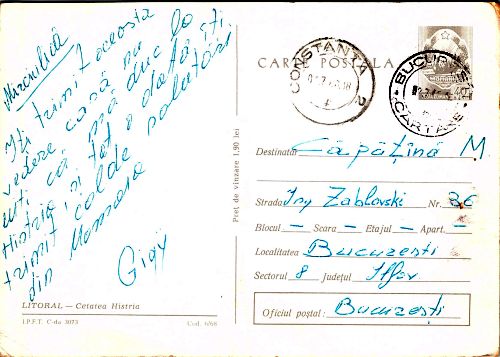 Marcinilică
Iți trimit aceasta
vedere ca să nu
uiți că mă duc la
Histria și tot o dată îți
trimit calde salutări
din Mamaia
Gigi
LITORAL — Cetatea Histria
I.P.F.T. C-da 3073
Cod. 6/68
Preț de vinzare 1,90 lei
CARTE POSTALA
CONSTANTA 2
BUCUREȘTI
CARTARE
Destinatar Căpățînă M.
Strada Ing Zablovski Nr. 36
Blocul — Scara — Etajul — Apart. —
Localitatea București
Sectorul 8 Județul Ilfov
Oficiul poștal: București